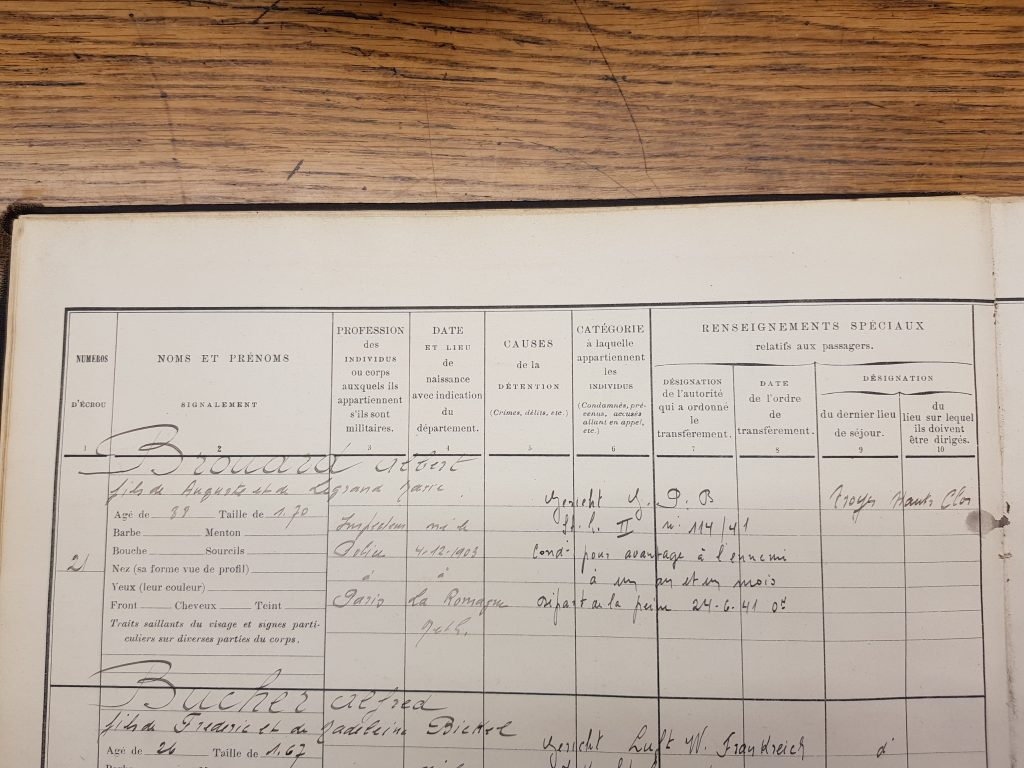 NUMÉROS
D'ÉCROU
1
NOMS ET PRÉNOMS
SIGNALEMENT
2
PROFESSION
des
INDIVIDUS
ou corps
auxquels ils
appartiennent
s'ils sont
militaires.
3
DATE
ET LIEU
de
naissance
avec indication
du
département.
4
CAUSES
de la
DÉTENTION
(Crimes, délits, etc.)
5
CATÉGORIE
à laquelle
appartiennent
les
INDIVIDUS
(Condamnés, pré-
venus, accusés
allant en appel,
etc.)
6
RENSEIGNEMENTS SPÉCIAUX
relatifs aux passagers.
DÉSIGNATION
de l'autorité
qui a ordonné
le
transfèrement.
7
DATE
de l'ordre
de
transfèrement.
8
DÉSIGNATION
du dernier lieu
de séjour.
9
du
lieu sur lequel
ils doivent
être dirigés.
10
21
Brouard Albert
fils de Auguste et de Legrand Marie
Agé de 38 Taille de 1.70
Barbe Menton
Bouche Sourcils
Nez (sa forme vue de profil)
Yeux (leur couleur)
Front Cheveux Teint
Traits saillants du visage et signes parti-
culiers sur diverses parties du corps.
Inspecteur
Police
à
Paris
né le
4-12-1903
à
La Romagne
Gericht G. P. B
St. L. II n° 114/41
Cond. pour avantage à l'ennemi
à un an et un mois
départ de la peine 24-6-41
Troyes Hauts Clos
Bucher Alfred
fils de Frederic et de Madeleine Bickel
Agé de 26 Taille de 1.67
Gericht Luft W. Frankreich d°